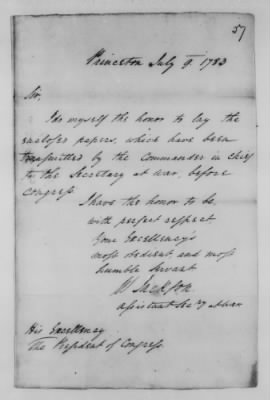 57
Princeton July 9. 1783
Sir,
I do myself the honor to lay the
enclosed papers, which have been
transmitted by the Commander in chief
to the Secretary at war, before
Congress.
I have the honor to be
with perfect respect
Your Excellency's
most obedient, and most
humble servant
W Jackson
assistant Secy at war
His Excellency
The President of Congress